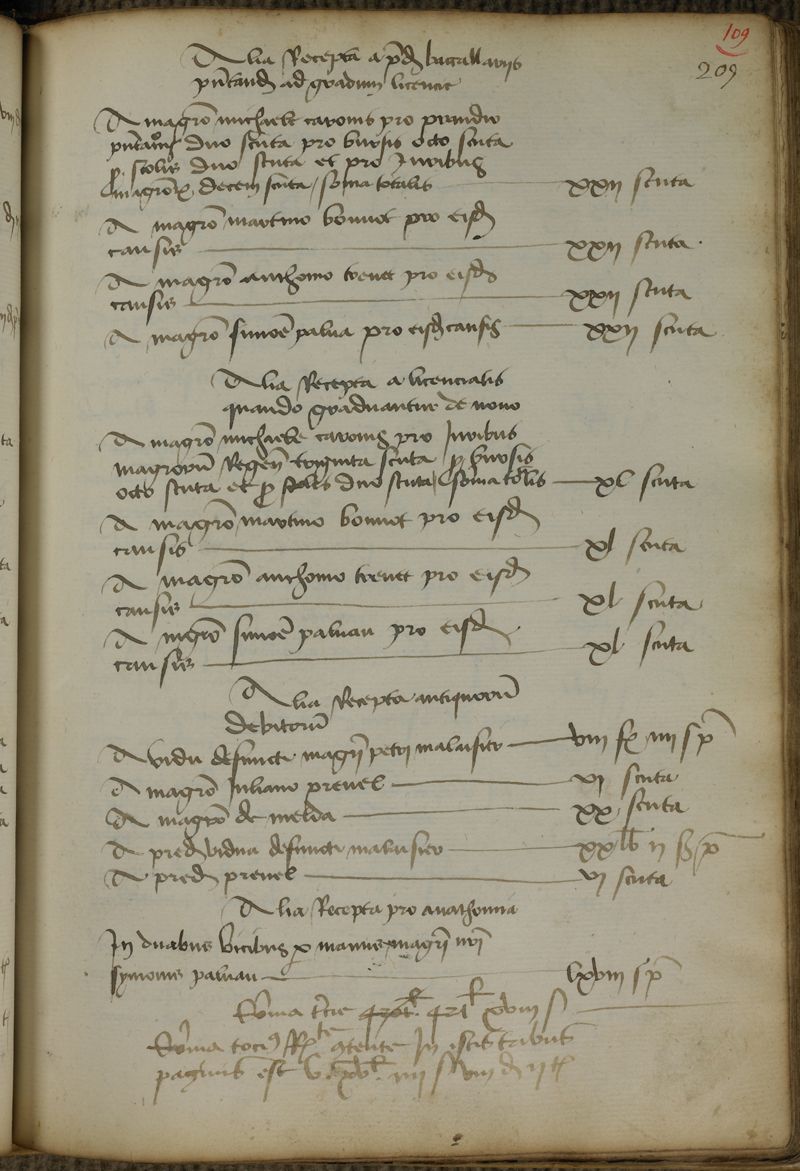 109
209
Alia Recepta a pd bacallariis
pntand ad gradum licencie
A magro michaele caronis pro prandio
duo scuta pro bursis octo scuta
p scolis duo scuta et pro Juribus
magror decem scuta / soma totalis xxii scuta
A magro martino bonnot pro eisd
causis xxii scuta
A magro anthonio trenet pro eisd
causis xxii scuta
A magro simoe paluau pro eisd causis xxii scuta
Alia Recepta a licenciatis
quando graduantur de novo
A magro michaele caronis pro Juribus
magrorum Regen triginta scuta p bursis
octo scuta et p scolis duo scuta / soma totalis xl scuta
A magro martino bonnot pro eisd
causis xl scuta
A magro anthonio trenet pro eisd
causis xl scuta
A mgro simoe paluau pro eisd
causis xl scuta
Alia Recepta antiquorum
debitorum
A vidua defuncti magri petri malaisier viii iiii s p
A magro Juliano prevel vi scuta
A magro de melda xx scuta
A pred vidua defuncti ii p
A pred prevel vi scuta
Alia Recepta pro anathomia
In duabus vicibus p manus magri nri
symonis paluau lxviii s p
Soma xviii s
Soma In istis tribus
paginis est iiii s viii d